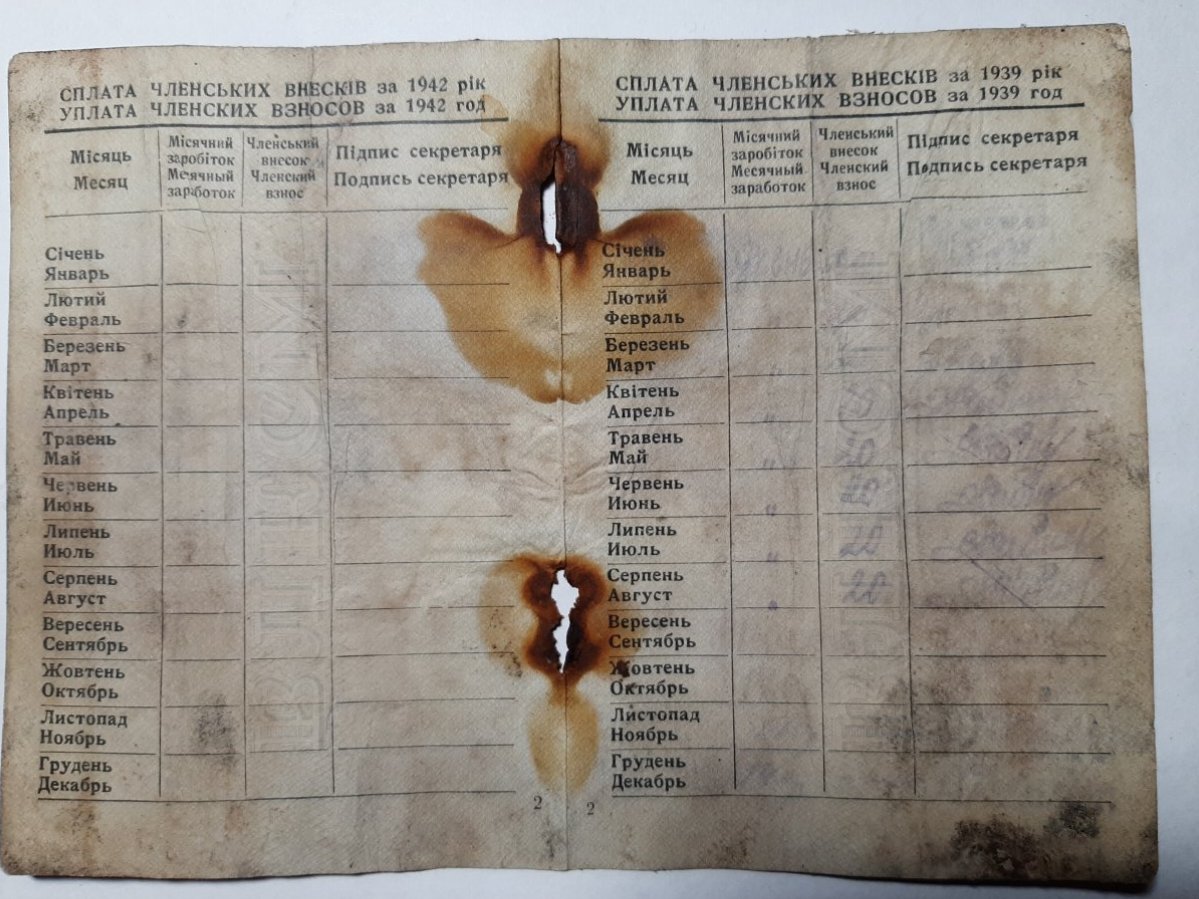 СПЛАТА ЧЛЕНСЬКИХ ВНЕСКІВ за 1942 рік
УПЛАТА ЧЛЕНСКИХ ВЗНОСОВ за 1942 год
Місяць
Месяц
Місячний
заробіток
Месячный
заработок
Членський
внесок
Членский
взнос
Підпис секретаря
Подпись секретаря
Січень
Январь
Лютий
Февраль
Березень
Март
Квітень
Апрель
Травень
Май
Червень
Июнь
Липень
Июль
Серпень
Август
Вересень
Сентябрь
Жовтень
Октябрь
Листопад
Ноябрь
Грудень
Декабрь
2
СПЛАТА ЧЛЕНСЬКИХ ВНЕСКІВ за 1939 рік
УПЛАТА ЧЛЕНСКИХ ВЗНОСОВ за 1939 год
Місяць
Месяц
Місячний
заробіток
Месячный
заработок
Членський
внесок
Членский
взнос
Підпис секретаря
Подпись секретаря
Січень
Январь
Лютий
Февраль
Березень
Март
Квітень
Апрель
Травень
Май
Червень
Июнь
Липень
Июль
Серпень
Август
Вересень
Сентябрь
Жовтень
Октябрь
Листопад
Ноябрь
Грудень
Декабрь
2